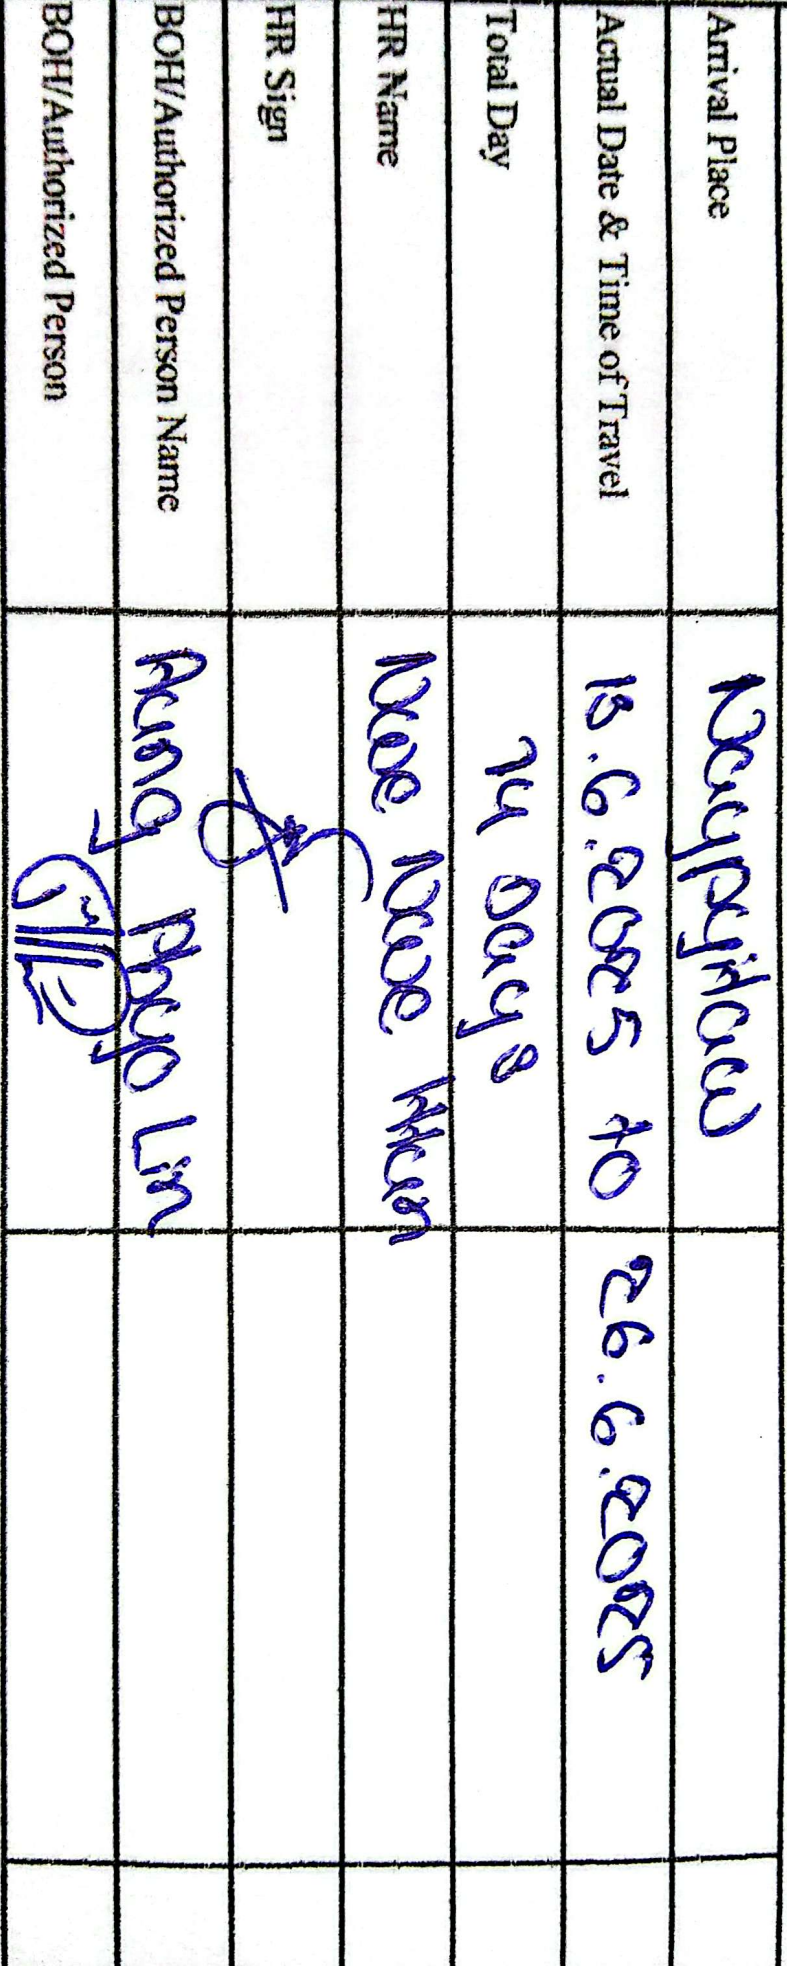 Arrival Place NaypyiTaw
Actual Date & Time of Travel 13.6.2025 to 26.6.2025
Total Day 14 Days
HR Name Nwe Nwe Htun
HR Sign
BOH/Authorized Person Name Aung Phyo Lin
BOH/Authorized Person